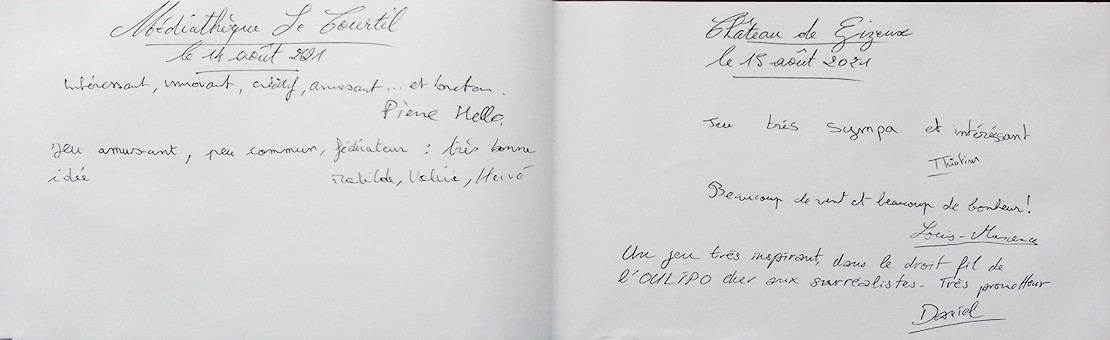 Médiathèque Le Courtil
le 14 août 2021
Intéressant, innovant, créatif, amusant... et breton.
Pierre Hello.
Jeu amusant, peu commun, fédérateur : très bonne
idée
Matilde, Valérie, Hervé
Château de Gizeux
le 15 août 2021
Jeu très sympa et intéréssant
Beaucoup de vent et beaucoup de bonheur !
Louis-Maxence
Un jeu très inspirant, dans le droit fil de
l'OULIPO cher aux surréalistes - Très prometteur
Daniel